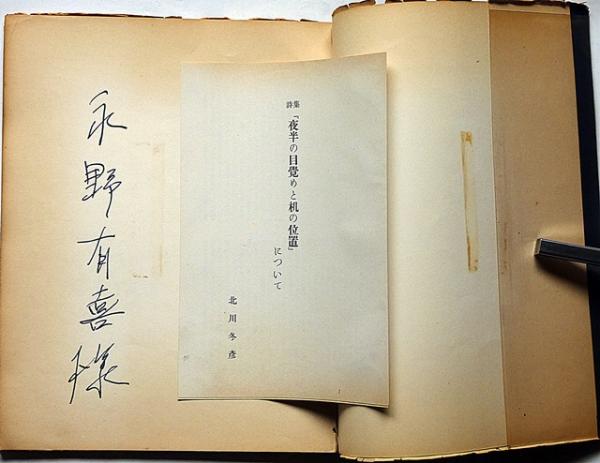 詩集
「夜半の目覚めと机の位置」
について
北川冬彦
永野有喜様